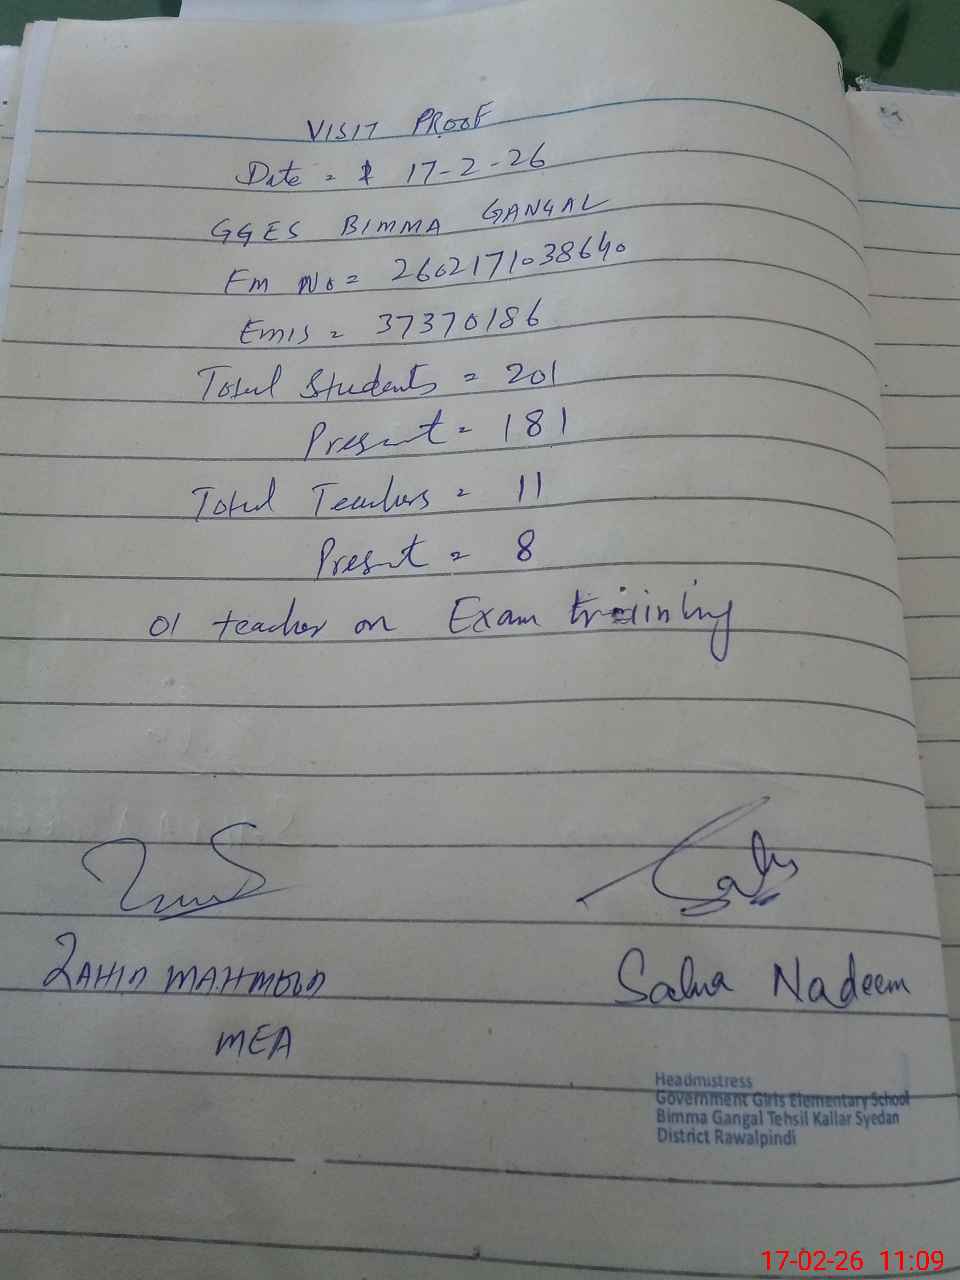 VISIT PROOF
Date = 17-2-26
GGES BIMMA GANGAL
Fm No = 2602171038640
Emis = 37370186
Total Students = 201
Present = 181
Total Teachers = 11
Present = 8
01 teacher on Exam training
ZAHID MAHMOOD
MEA
Nadeem
Headmistress
Government Girls Elementary School
Bimma Gangal Tehsil Kallar Syedan
District Rawalpindi
17-02-26 11:09